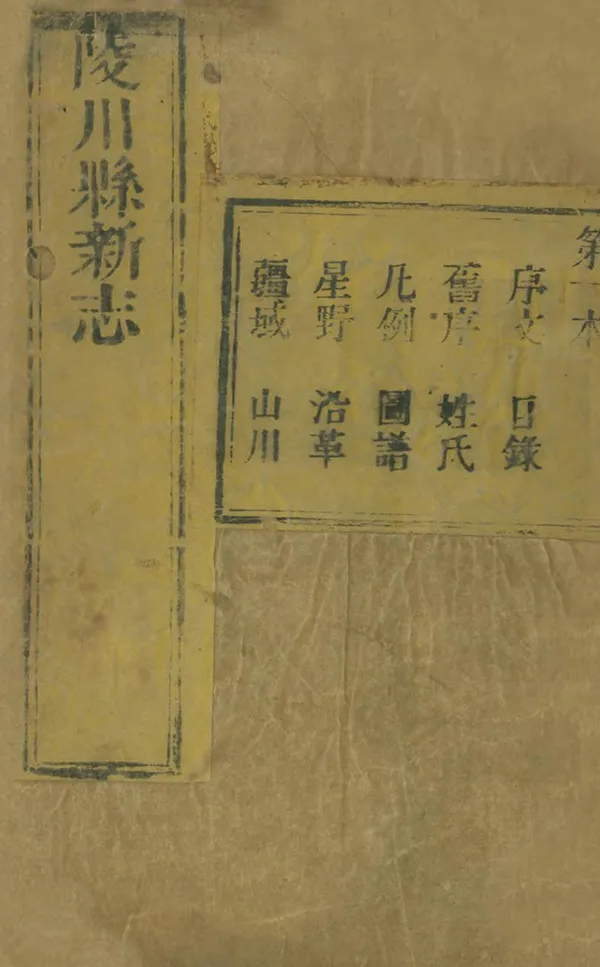 陵川縣新志
第一本
序文 目錄
舊序 姓氏
凡例 圖譜
星野 沿革
疆域 山川